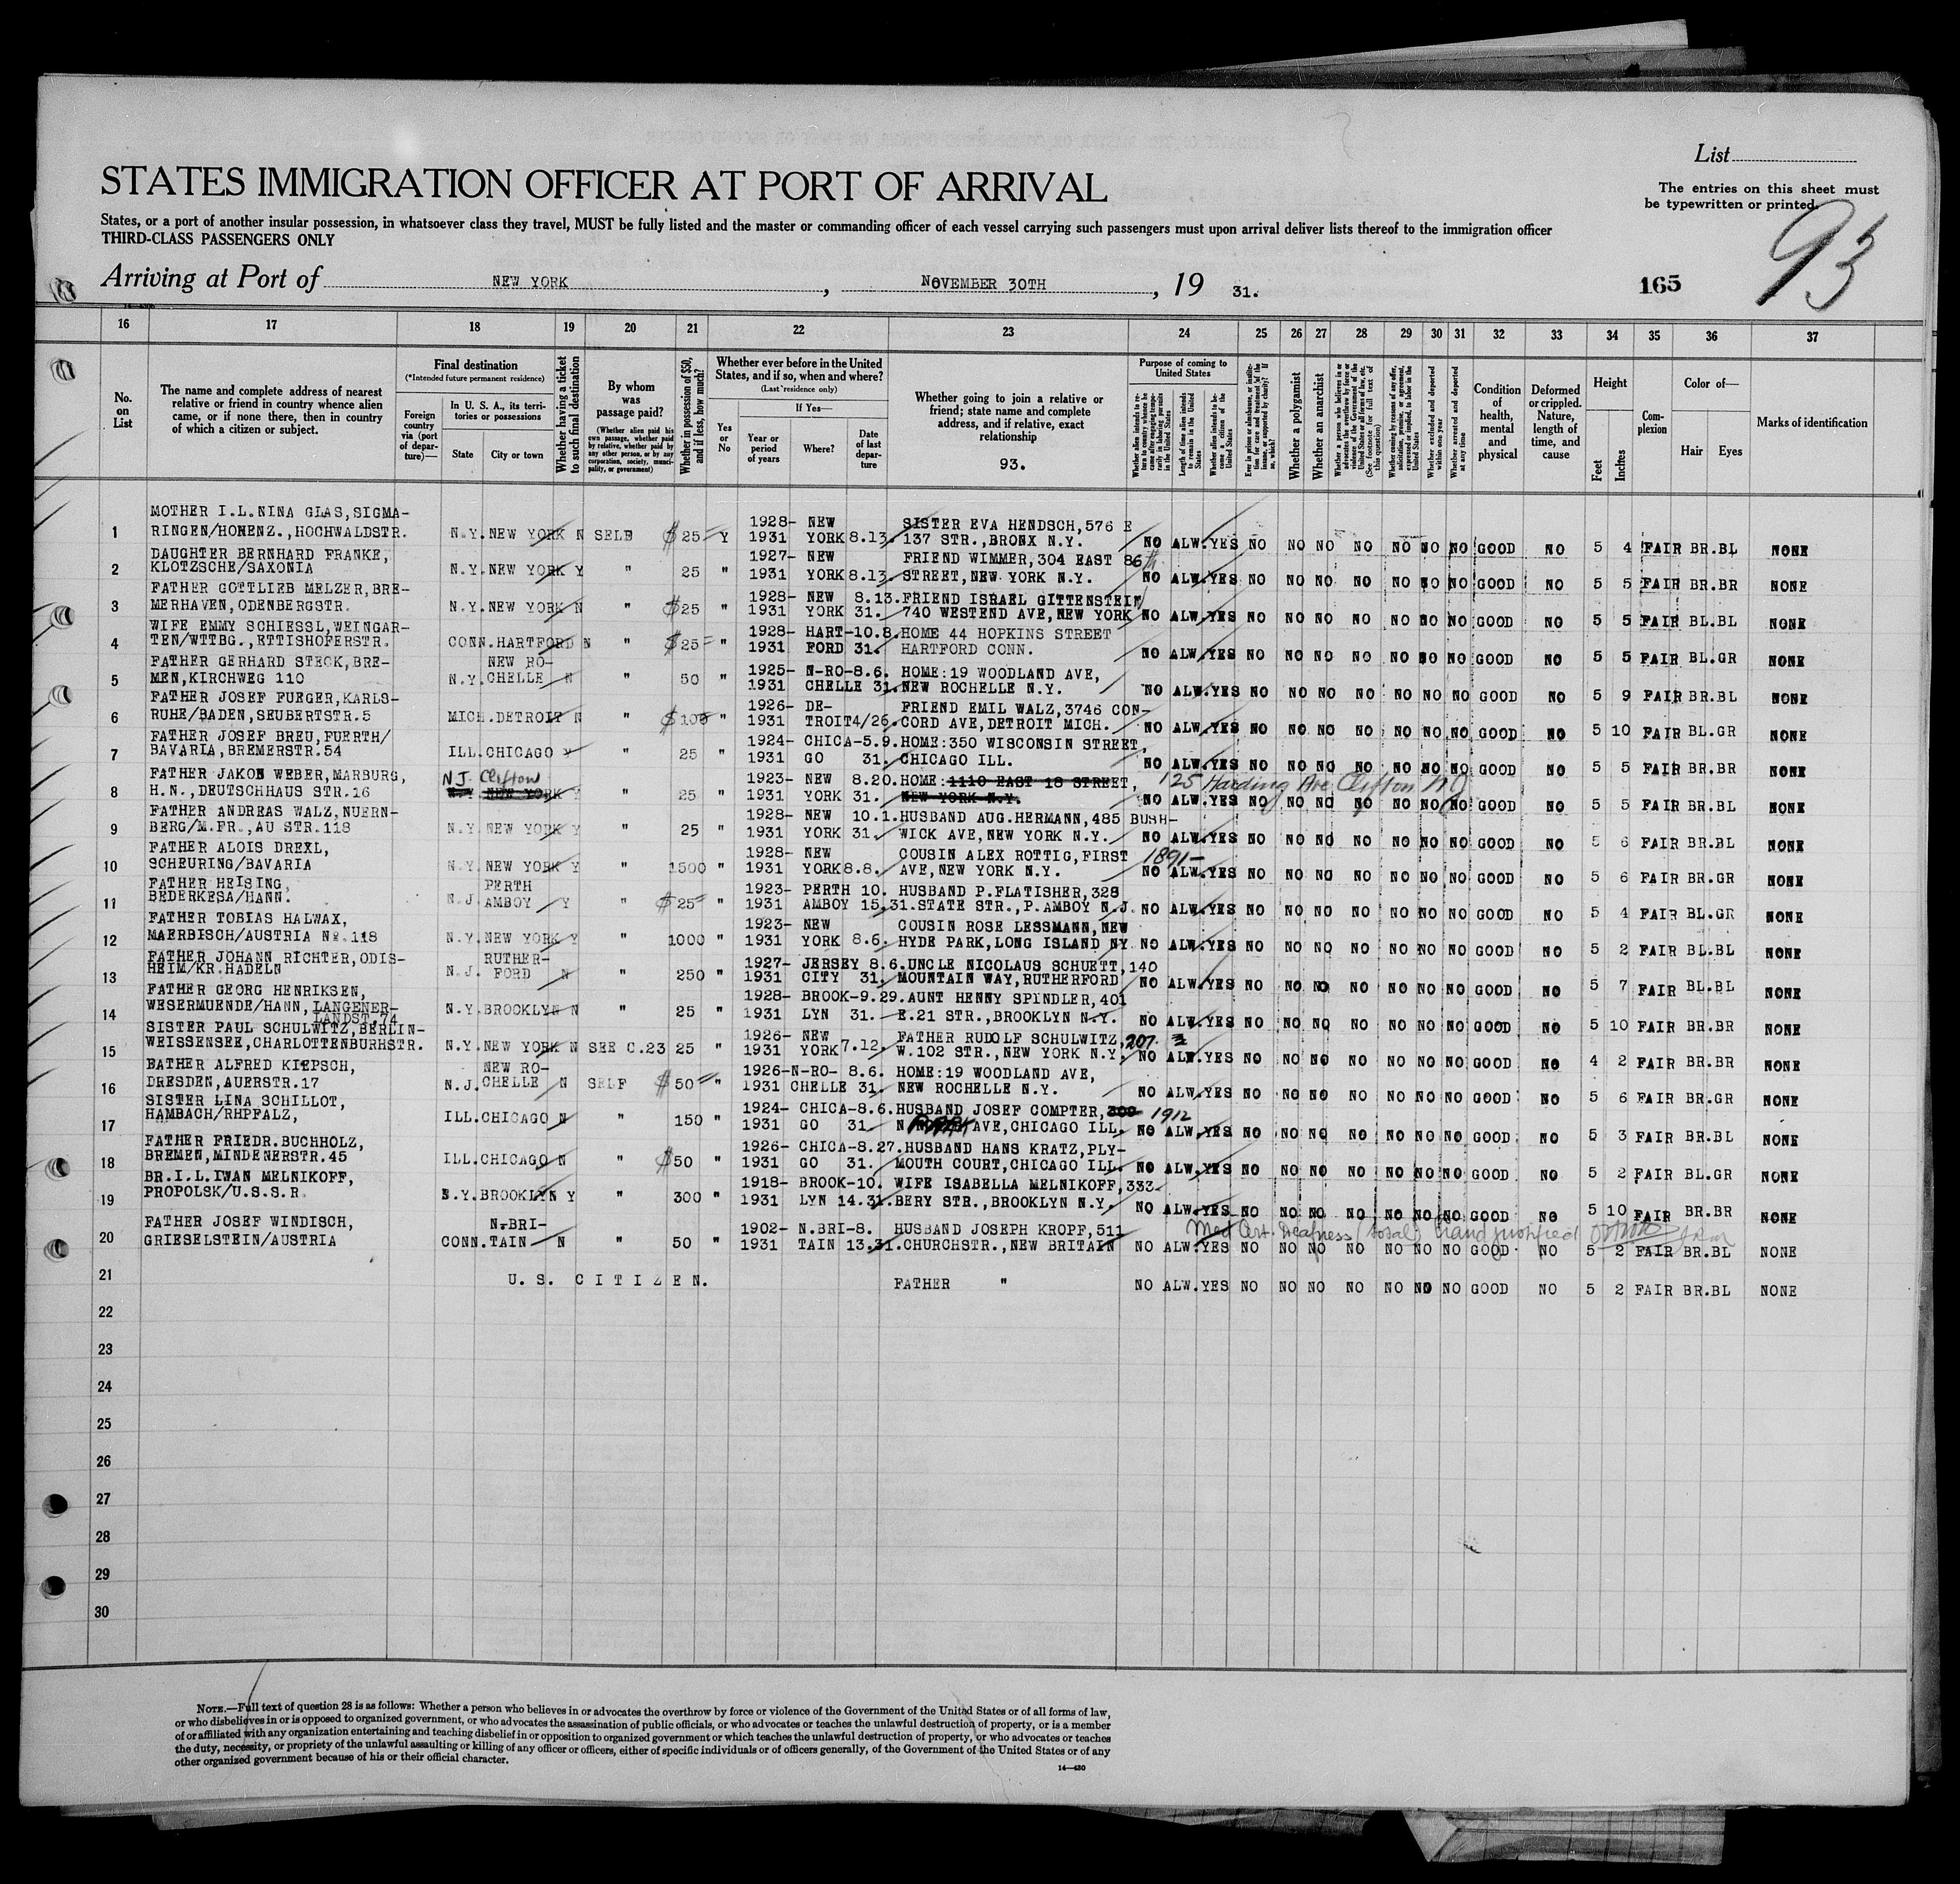 List
STATES IMMIGRATION OFFICER AT PORT OF ARRIVAL
The entries on this sheet must be typewritten or printed.
States, or a port of another insular possession, in whatsoever class they travel, MUST be fully listed and the master or commanding officer of each vessel carrying such passengers must upon arrival deliver lists thereof to the immigration officer
THIRD-CLASS PASSENGERS ONLY
93
Arriving at Port of NEW YORK, NOVEMBER 30TH, 19 31.
165
16 17 18 19 20 21 22 23 24 25 26 27 28 29 30 31 32 33 34 35 36 37
No. on List
The name and complete address of nearest relative or friend in country whence alien came, or if none there, then in country of which a citizen or subject.
Final destination
(*Intended future permanent residence)
Foreign country via (port of departure)—
In U. S. A., its territories or possessions
State
City or town
Whether having a ticket to such final destination
By whom was passage paid?
(Whether alien paid his own passage, whether paid by relative, whether paid by any other person, or by any corporation, society, municipality, or government)
Whether in possession of $50, and if less, how much?
Whether ever before in the United States, and if so, when and where?
(Last residence only)
Yes or No
If Yes—
Year or period of years
Where?
Date of last departure
Whether going to join a relative or friend; state name and complete address, and if relative, exact relationship
93.
Purpose of coming to United States
Length of time alien intends to remain in the United States
Whether alien intends to become a citizen of the United States
Whether a polygamist
Whether an anarchist
Whether excluded and deported within one year
Whether arrested and deported at any time
Condition of health, mental and physical
Deformed or crippled. Nature, length of time, and cause
Height
Feet
Inches
Complexion
Color of—
Hair
Eyes
Marks of identification
1 MOTHER I.L.NINA GLAS,SIGMA-RINGEN/HOHENZ.,HOCHWALDSTR. N.Y. NEW YORK N SELF $25 Y 1928-1931 NEW YORK 8.13. SISTER EVA HENDSCH,576 E 137 STR.,BRONX N.Y. NO ALW.YES NO NO NO NO NO NO NO GOOD NO 5 4 FAIR BR.BL NONE
2 DAUGHTER BERNHARD FRANKE, KLOTZSCHE/SAXONIA N.Y. NEW YORK Y " 25 " 1927-1931 NEW YORK 8.13. FRIEND WIMMER,304 EAST 86th STREET,NEW YORK N.Y. NO ALW.YES NO NO NO NO NO NO NO GOOD NO 5 5 FAIR BR.BR NONE
3 FATHER GOTTLIEB MELZER,BRE-MERHAVEN,ODENBERGSTR. N.Y. NEW YORK N " $25 " 1928-1931 NEW YORK 8.13.31. FRIEND ISRAEL GITTENSTEIN 740 WESTEND AVE,NEW YORK NO ALW.YES NO NO NO NO NO NO NO GOOD NO 5 5 FAIR BL.BL NONE
4 WIFE EMMY SCHIESSL,WEINGAR-TEN/WTTBG.,ETTISHOFERSTR. CONN.HARTFORD N " $25 " 1928-1931 HART-FORD 10.8.31. HOME 44 HOPKINS STREET HARTFORD CONN. NO ALW.YES NO NO NO NO NO NO NO GOOD NO 5 5 FAIR BL.GR NONE
5 FATHER GERHARD STECK,BRE-MEN,KIRCHWEG 110 N.Y. NEW RO-CHELLE N " 50 " 1925-1931 N-RO-CHELLE 8.6.31. HOME:19 WOODLAND AVE, NEW ROCHELLE N.Y. NO ALW.YES NO NO NO NO NO NO NO GOOD NO 5 9 FAIR BR.BL NONE
6 FATHER JOSEF FUEGER,KARLS-RUHE/BADEN,SEUBERTSTR.5 MICH.DETROIT N " $100 " 1926-1931 DE-TROIT 4/26. FRIEND EMIL WALZ,3746 CON-CORD AVE,DETROIT MICH. NO ALW.YES NO NO NO NO NO NO NO GOOD NO 5 10 FAIR BL.GR NONE
7 FATHER JOSEF BREU,FUERTH/BAVARIA,BREMERSTR.54 ILL.CHICAGO Y " 25 " 1924-1931 CHICA-GO 5.9.31. HOME:350 WISCONSIN STREET, CHICAGO ILL. NO ALW.YES NO NO NO NO NO NO NO GOOD NO 5 5 FAIR BR.BR NONE
8 FATHER JAKOB WEBER,MARBURG, H.N.,DEUTSCHHAUS STR.16 NJ. Clifton N.Y. NEW YORK Y " 25 " 1923-1931 NEW YORK 8.20.31. HOME:1110 EAST 18 STREET, NEW YORK N.Y. 125 Harding Ave Clifton NJ NO ALW.YES NO NO NO NO NO NO NO GOOD NO 5 5 FAIR BR.BL NONE
9 FATHER ANDREAS WALZ,NUERN-BERG/M.FR.,AU STR.118 N.Y. NEW YORK Y " 25 " 1928-1931 NEW YORK 10.1.31. HUSBAND AUG.HERMANN,485 BUSH-WICK AVE,NEW YORK N.Y. NO ALW.YES NO NO NO NO NO NO NO GOOD NO 5 6 FAIR BR.BL NONE
10 FATHER ALOIS DREXL, SCHEURING/BAVARIA N.Y. NEW YORK Y " 1500 " 1928-1931 NEW YORK 8.8. COUSIN ALEX ROTTIG,FIRST 1891- AVE,NEW YORK N.Y. NO ALW.YES NO NO NO NO NO NO NO GOOD NO 5 6 FAIR BR.GR NONE
11 FATHER HEISING, BEDERKESA/HANN. N.J. PERTH AMBOY Y " $25 " 1923-1931 PERTH AMBOY 10.15.31. HUSBAND P.FLATISHER,328 STATE STR.,P.AMBOY N.J. NO ALW.YES NO NO NO NO NO NO NO GOOD NO 5 4 FAIR BL.GR NONE
12 FATHER TOBIAS HALWAX, MAERBISCH/AUSTRIA No.118 N.Y. NEW YORK Y " 1000 " 1923-1931 NEW YORK 8.6. COUSIN ROSE LESSMANN,NEW HYDE PARK,LONG ISLAND NY NO ALW.YES NO NO NO NO NO NO NO GOOD NO 5 2 FAIR BL.BL NONE
13 FATHER JOHANN RICHTER,ODIS-HEIM/KR.HADELN N.J. RUTHER-FORD N " 250 " 1927-1931 JERSEY CITY 8.6.31. UNCLE NICOLAUS SCHUETT,140 MOUNTAIN WAY,RUTHERFORD NO ALW.YES NO NO NO NO NO NO NO GOOD NO 5 7 FAIR BL.BL NONE
14 FATHER GEORG HENRIKSEN, WESERMUENDE/HANN,LANGENER-LANDST.74 N.Y. BROOKLYN N " 25 " 1928-1931 BROOK-LYN 9.29.31. AUNT HENNY SPINDLER,401 E.21 STR.,BROOKLYN N.Y. NO ALW.YES NO NO NO NO NO NO NO GOOD NO 5 10 FAIR BR.BR NONE
15 SISTER PAUL SCHULWITZ,BERLIN-WEISSENSEE,CHARLOTTENBURHSTR. N.Y. NEW YORK N SEE C.23 25 " 1926-1931 NEW YORK 7.12. FATHER RUDOLF SCHULWITZ,207 W.102 STR.,NEW YORK N.Y. NO ALW.YES NO NO NO NO NO NO NO GOOD NO 4 2 FAIR BR.BR NONE
16 BATHER ALFRED KIEPSCH, DRESDEN,AUERSTR.17 N.J. NEW RO-CHELLE N SELF $50 " 1926-1931 N-RO-CHELLE 8.6.31. HOME:19 WOODLAND AVE, NEW ROCHELLE N.Y. NO ALW.YES NO NO NO NO NO NO NO GOOD NO 5 6 FAIR BR.GR NONE
17 SISTER LINA SCHILLOT, HAMBACH/RHPFALZ, ILL.CHICAGO N " 150 " 1924-1931 CHICA-GO 8.6.31. HUSBAND JOSEF COMPTER,300 1912 N AVE,CHICAGO ILL. NO ALW.YES NO NO NO NO NO NO NO GOOD NO 5 3 FAIR BR.BL NONE
18 FATHER FRIEDR.BUCHHOLZ, BREMEN,MINDENERSTR.45 ILL.CHICAGO N " $50 " 1926-1931 CHICA-GO 8.27.31. HUSBAND HANS KRATZ,PLY-MOUTH COURT,CHICAGO ILL. NO ALW.YES NO NO NO NO NO NO NO GOOD NO 5 2 FAIR BL.GR NONE
19 BR.I.L.IWAN MELNIKOFF, PROPOLSK/U.S.S.R. N.Y. BROOKLYN Y " 300 " 1918-1931 BROOK-LYN 10.14.31. WIFE ISABELLA MELNIKOFF,333 BERY STR.,BROOKLYN N.Y. NO ALW.YES NO NO NO NO NO NO NO GOOD NO 5 10 FAIR BR.BR NONE
Med Cert. Deafness
20 FATHER JOSEF WINDISCH, GRIESELSTEIN/AUSTRIA CONN. N.BRI-TAIN N " 50 " 1902-1931 N.BRI-TAIN 8.13.31. HUSBAND JOSEPH KROPF,511 CHURCHSTR.,NEW BRITAIN NO ALW.YES NO NO NO NO NO NO NO GOOD NO 5 2 FAIR BR.BL NONE
21 U. S. C I T I Z E N. FATHER " NO ALW.YES NO NO NO NO NO NO NO GOOD NO 5 2 FAIR BR.BL NONE
22
23
24
25
26
27
28
29
30
NOTE.—Full text of question 28 is as follows: Whether a person who believes in or advocates the overthrow by force or violence of the Government of the United States or of all forms of law,
or who disbelieves in or is opposed to organized government, or who advocates the assassination of public officials, or who advocates or teaches the unlawful destruction of property, or is a member
of or affiliated with any organization entertaining and teaching disbelief in or opposition to organized government or which teaches the unlawful destruction of property, or who advocates or teaches
the duty, necessity, or propriety of the unlawful assaulting or killing of any officer or officers, either of specific individuals or of officers generally, of the Government of the United States or of any
other organized government because of his or their official character.
14—430